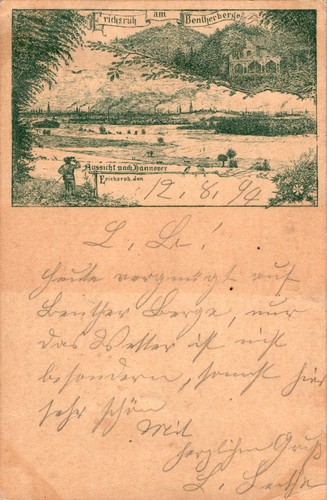 Erichsruh am Bentherberge
Aussicht nach Hannover
Erichsruh, den 12. 8. 94
L. !
Heute vergnügt auf
Benther Berge, nur
das Wetter ist nicht
besonders, sonst hier
sehr schön
Mit
herzlichem Gruß
L.